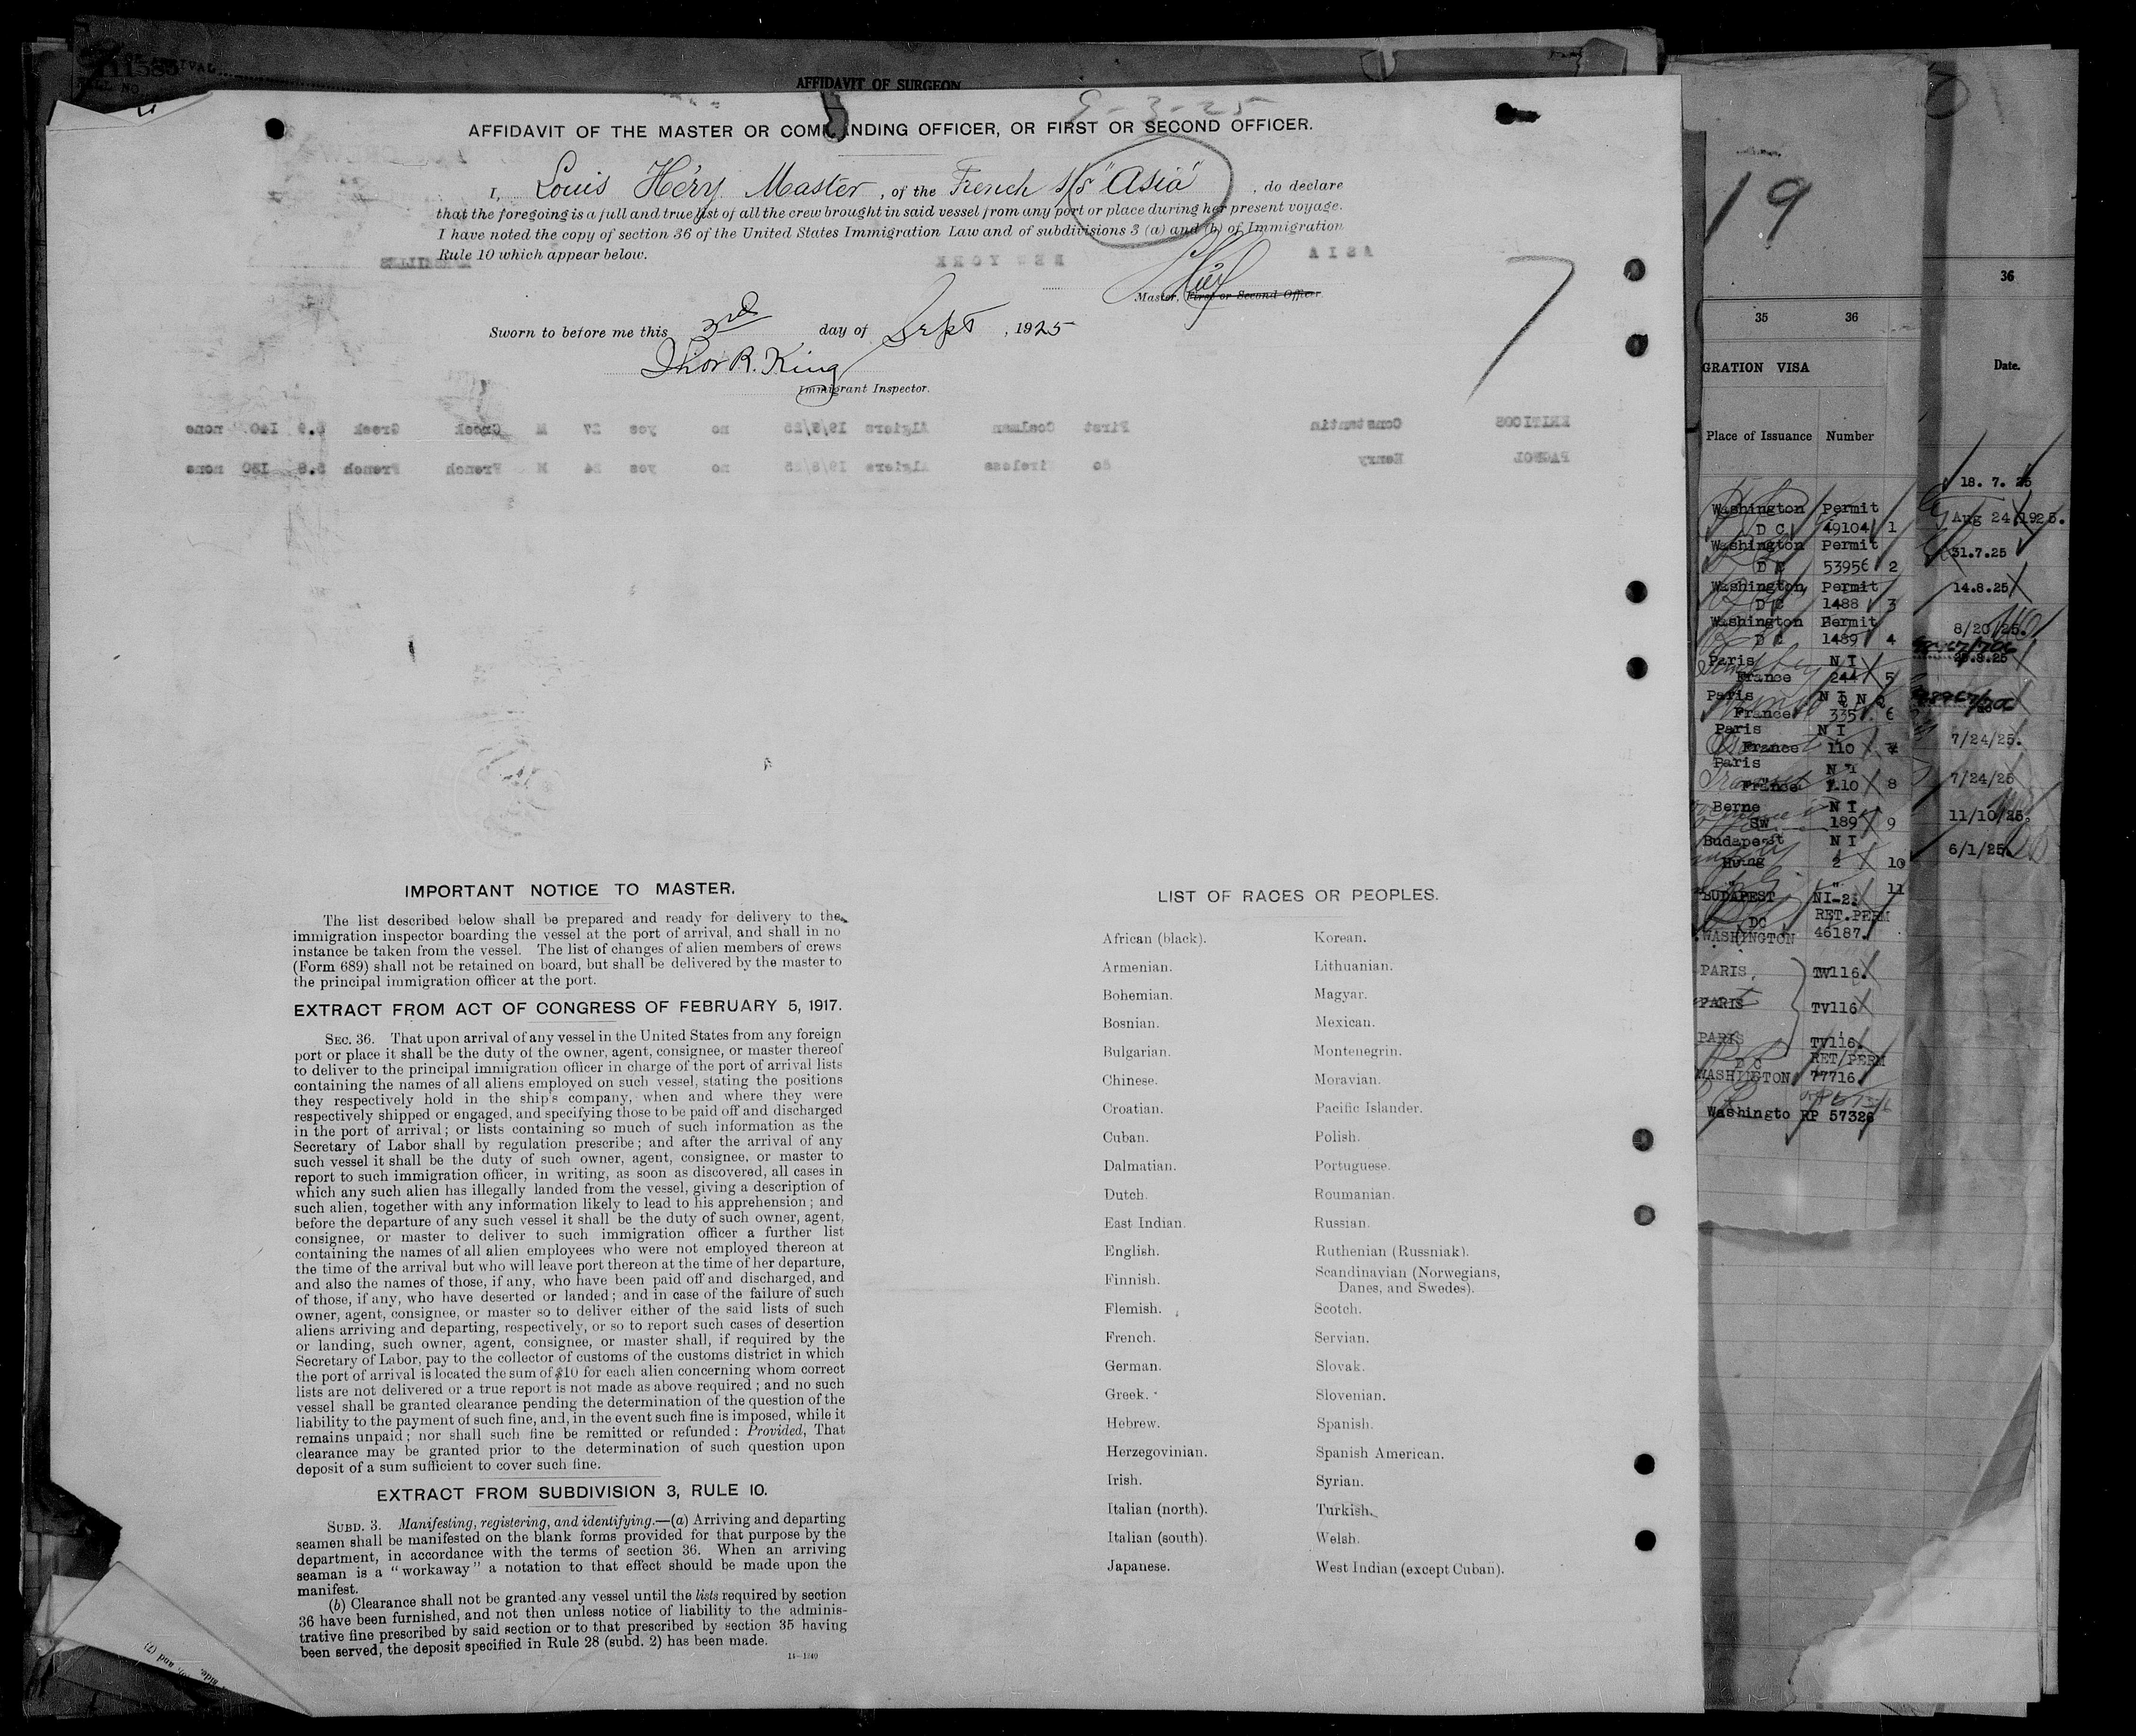 11585
AFFIDAVIT OF SURGEON
9-3-25
AFFIDAVIT OF THE MASTER OR COMMANDING OFFICER, OR FIRST OR SECOND OFFICER.
I, Louis Héry Master, of the French S/S "Asia", do declare
that the foregoing is a full and true list of all the crew brought in said vessel from any port or place during her present voyage.
I have noted the copy of section 36 of the United States Immigration Law and of subdivisions 3 (a) and (b) of Immigration
Rule 10 which appear below.
ASIA NEW YORK MARSEILLES
Master, First or Second Officer.
Sworn to before me this 3rd day of Sept, 1925
Thor R. King
Immigrant Inspector.
Constantin First Coalman Algiers 19/8/25 no yes 27 M Greek Greek 5.9 140 none
PAGNOL Henry do Wireless Algiers 19/8/25 no yes 24 M French French 5.8 130 none
IMPORTANT NOTICE TO MASTER.
The list described below shall be prepared and ready for delivery to the
immigration inspector boarding the vessel at the port of arrival, and shall in no
instance be taken from the vessel. The list of changes of alien members of crews
(Form 689) shall not be retained on board, but shall be delivered by the master to
the principal immigration officer at the port.
EXTRACT FROM ACT OF CONGRESS OF FEBRUARY 5, 1917.
SEC. 36. That upon arrival of any vessel in the United States from any foreign
port or place it shall be the duty of the owner, agent, consignee, or master thereof
to deliver to the principal immigration officer in charge of the port of arrival lists
containing the names of all aliens employed on such vessel, stating the positions
they respectively hold in the ship's company, when and where they were
respectively shipped or engaged, and specifying those to be paid off and discharged
in the port of arrival; or lists containing so much of such information as the
Secretary of Labor shall by regulation prescribe; and after the arrival of any
such vessel it shall be the duty of such owner, agent, consignee, or master to
report to such immigration officer, in writing, as soon as discovered, all cases in
which any such alien has illegally landed from the vessel, giving a description of
such alien, together with any information likely to lead to his apprehension; and
before the departure of any such vessel it shall be the duty of such owner, agent,
consignee, or master to deliver to such immigration officer a further list
containing the names of all alien employees who were not employed thereon at
the time of the arrival but who will leave port thereon at the time of her departure,
and also the names of those, if any, who have been paid off and discharged, and
of those, if any, who have deserted or landed; and in case of the failure of such
owner, agent, consignee, or master so to deliver either of the said lists of such
aliens arriving and departing, respectively, or so to report such cases of desertion
or landing, such owner, agent, consignee, or master shall, if required by the
Secretary of Labor, pay to the collector of customs of the customs district in which
the port of arrival is located the sum of $10 for each alien concerning whom correct
lists are not delivered or a true report is not made as above required; and no such
vessel shall be granted clearance pending the determination of the question of the
liability to the payment of such fine, and, in the event such fine is imposed, while it
remains unpaid; nor shall such fine be remitted or refunded: Provided, That
clearance may be granted prior to the determination of such question upon
deposit of a sum sufficient to cover such fine.
EXTRACT FROM SUBDIVISION 3, RULE 10.
SUBD. 3. Manifesting, registering, and identifying.—(a) Arriving and departing
seamen shall be manifested on the blank forms provided for that purpose by the
department, in accordance with the terms of section 36. When an arriving
seaman is a "workaway" a notation to that effect should be made upon the
manifest.
(b) Clearance shall not be granted any vessel until the lists required by section
36 have been furnished, and not then unless notice of liability to the adminis-
trative fine prescribed by said section or to that prescribed by section 35 having
been served, the deposit specified in Rule 28 (subd. 2) has been made.
14—1240
LIST OF RACES OR PEOPLES.
African (black). Korean.
Armenian. Lithuanian.
Bohemian. Magyar.
Bosnian. Mexican.
Bulgarian. Montenegrin.
Chinese. Moravian.
Croatian. Pacific Islander.
Cuban. Polish.
Dalmatian. Portuguese.
Dutch. Roumanian.
East Indian. Russian.
English. Ruthenian (Russniak).
Finnish. Scandinavian (Norwegians,
Danes, and Swedes).
Flemish. Scotch.
French. Servian.
German. Slovak.
Greek. Slovenian.
Hebrew. Spanish.
Herzegovinian. Spanish American.
Irish. Syrian.
Italian (north). Turkish.
Italian (south). Welsh.
Japanese. West Indian (except Cuban).
19
35 36
GRATION VISA
Place of Issuance Number
Washington Permit
D C 49104 1
Washington Permit
D C 53956 2
Washington Permit
D C 1488 3
Washington Permit
D C 1489 4
Paris N I
France 244 5
Paris N I
France 335 6
Paris N I
France 110 7
Paris N I
France 110 8
Berne N I
SW 189 9
Budapest N I
Hung 2 10
BUDAPEST NI-2 11
DC RET.PERM
WASHINGTON 46187.
PARIS. TV116.
PARIS TV116
PARIS TV116.
D C RET/PERM
WASHINGTON 77716.
Washingto RP 57326
36
Date.
18. 7. 25
Aug 24 1925.
31.7.25
14.8.25
8/20/25.
25.8.25
7/24/25.
7/24/25
11/10/25.
6/1/25.